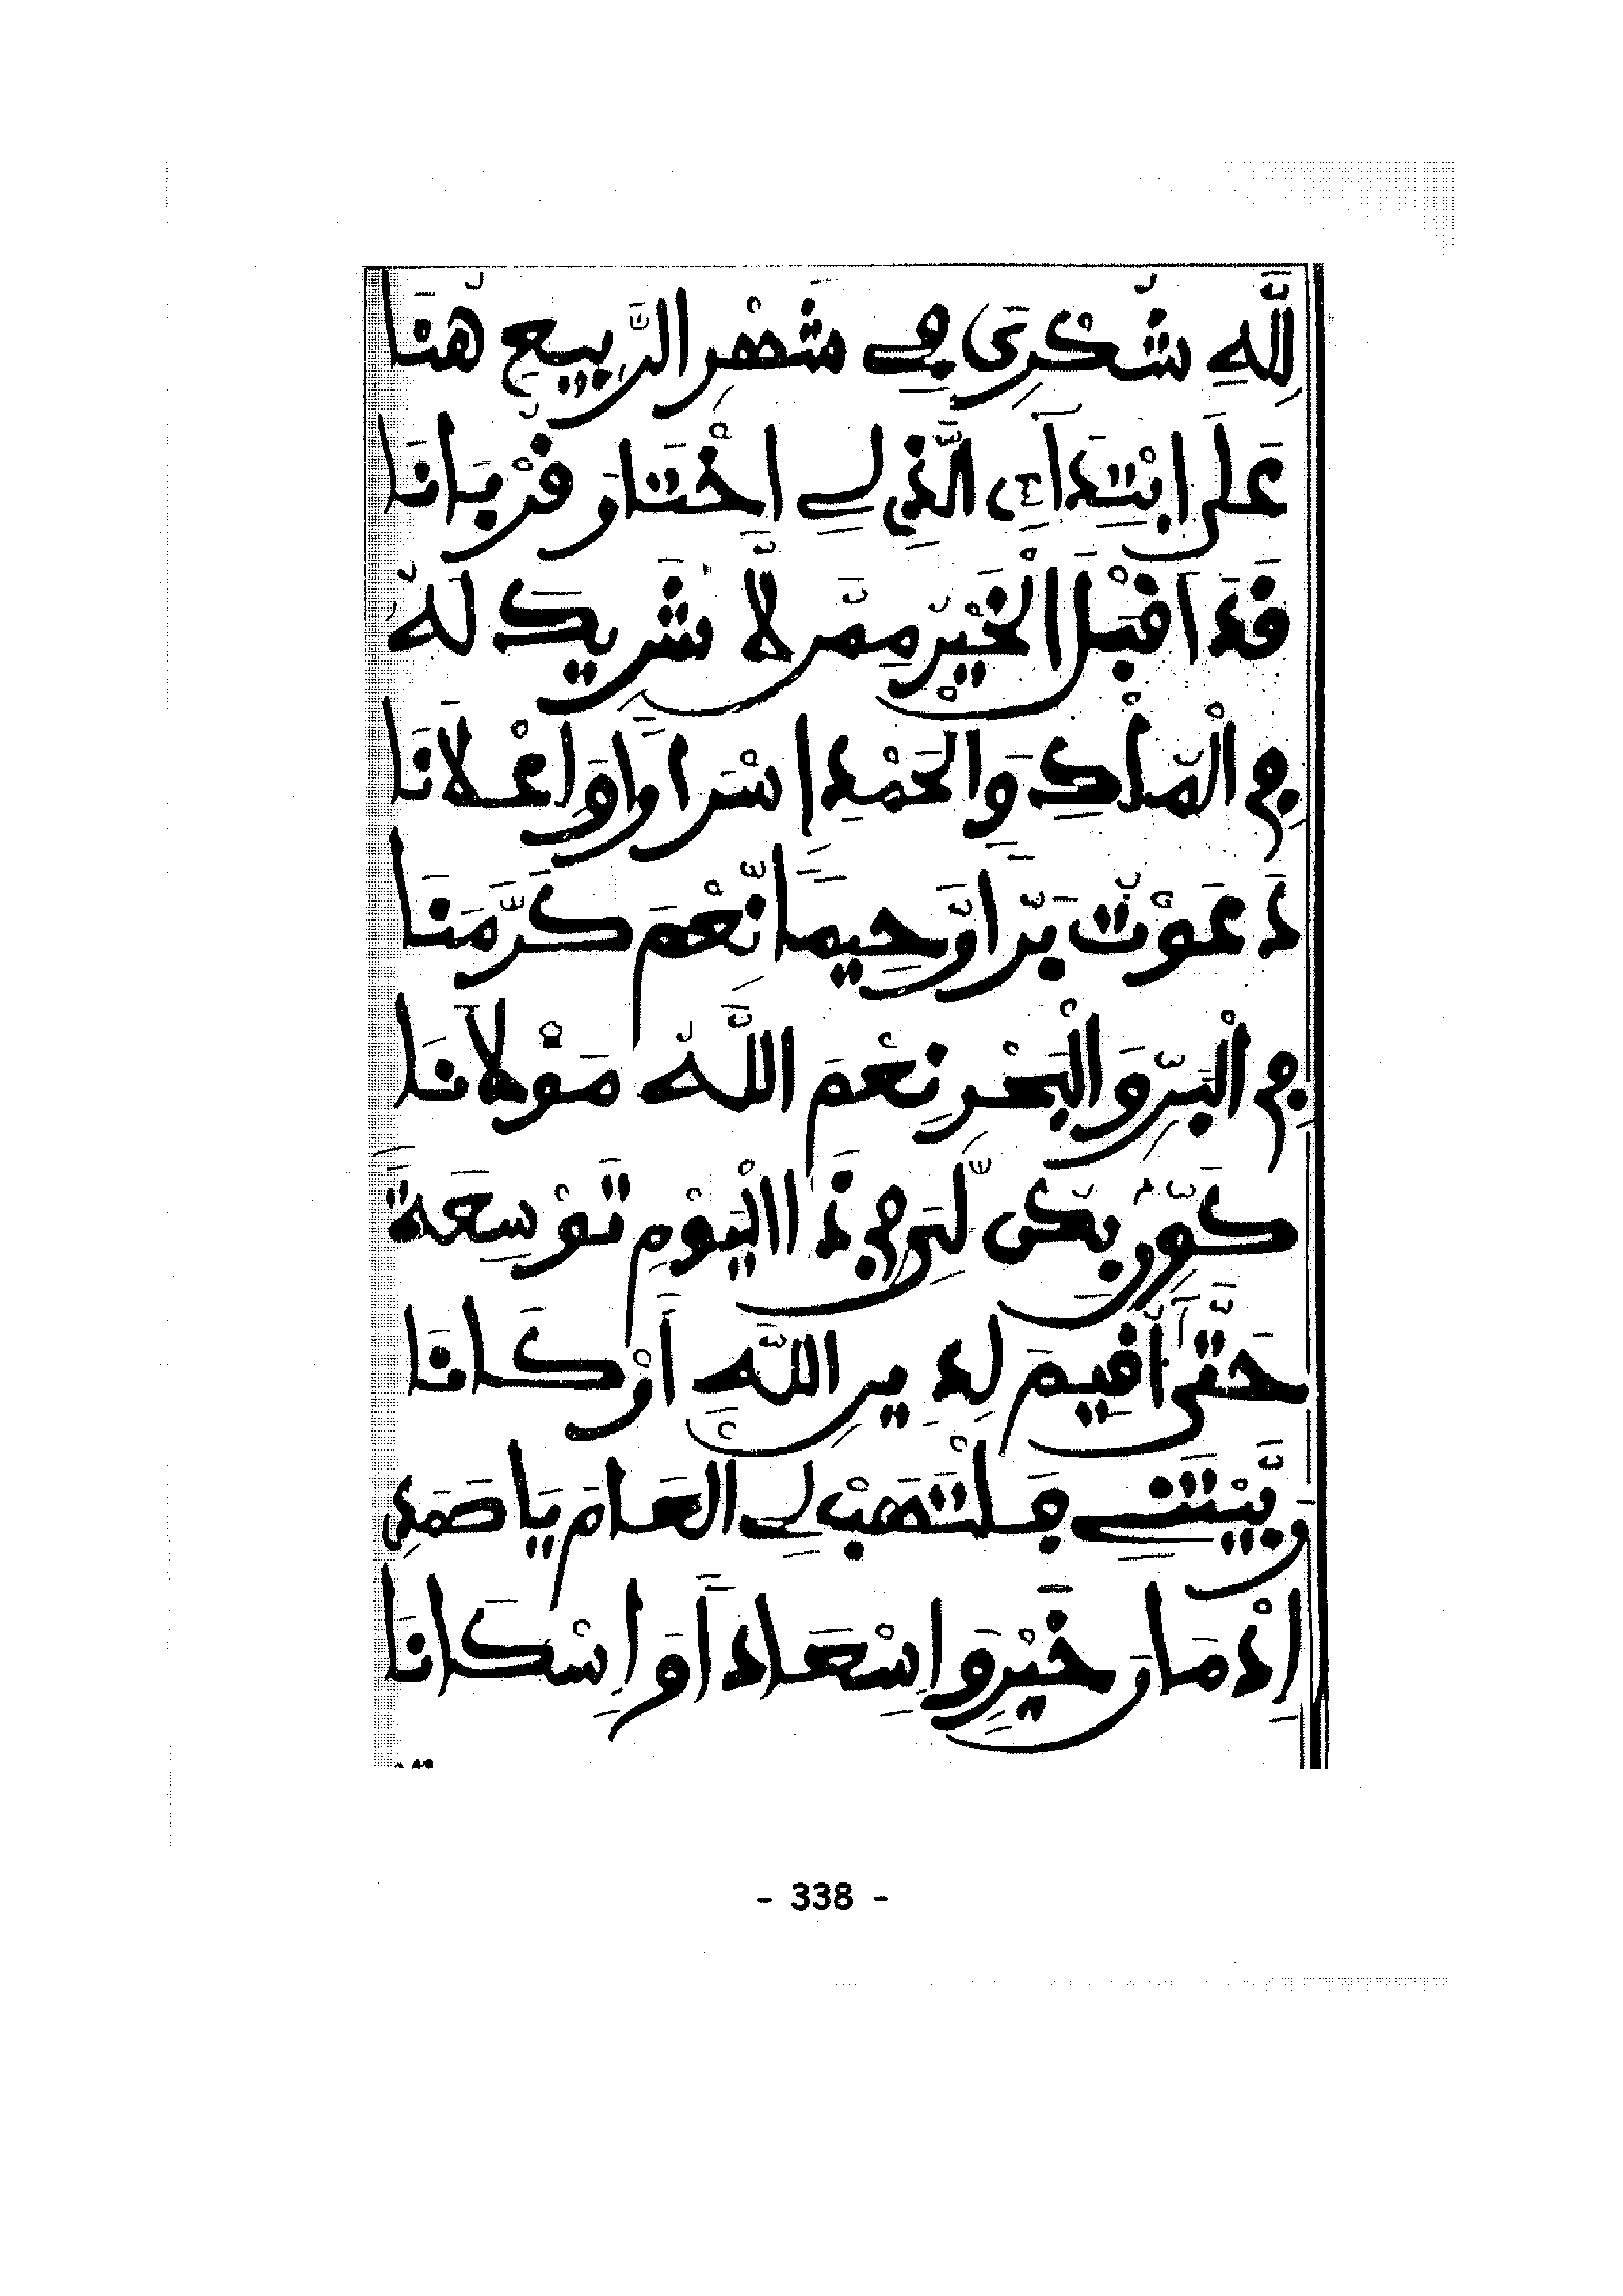 لِلَّهِ شُكْرِيَ فِي شَهْرِ الرَّبِيعِ هُنَا
عَلَى ابْتِدَاءِ الَّذِي لِي اخْتَارَ قُرْبَانَا
قَدَ اقْبَلَ الْخَيْرُ مِمَّن لَّا شَرِيكَ لَهُ
فِي الْمُلْكِ وَالْحَمْدِ إِسْرَارًا وَإِعْلَانَا
دَعَوْتُ بَرًّا رَّحِيمًا نِّعْمَ كَرَّمَنَا
فِي الْبَرِّ وَالْبَحْرِ نِعْمَ اللَّهُ مَوْلَانَا
كَوِّنْ بِكُن لِّيَ فِي ذَا الْيَوْمِ تَوْسِعَةً
حَتَّى أُقِيمَ لِدِينِ اللَّهِ أَرْكَانَا
وَبَّيْتَنِي فَلْتَهَبْ لِي الْعَامَ يَا صَمَدِي
إِدْمَانَ خَيْرٍ وَإِسْعَادًا وَإِسْكَانَا
- 338 -